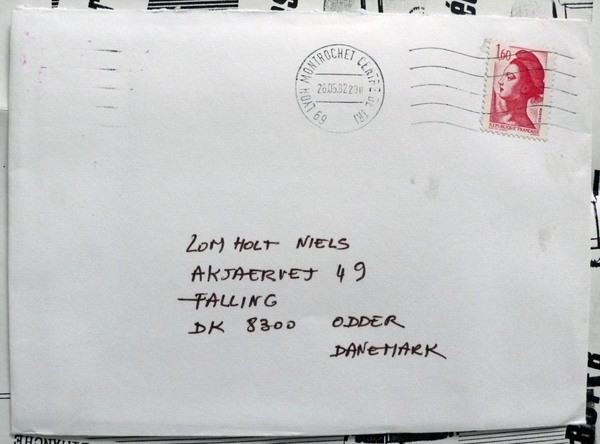 69 LYON MONTROCHET CENTRE DE TRI
26.05.82
1,60
REPUBLIQUE FRANÇAISE
LOM HOLT NIELS
AKJAERVEJ 49
FALLING
DK 8300 ODDER
DANEMARK
DIMANCHE